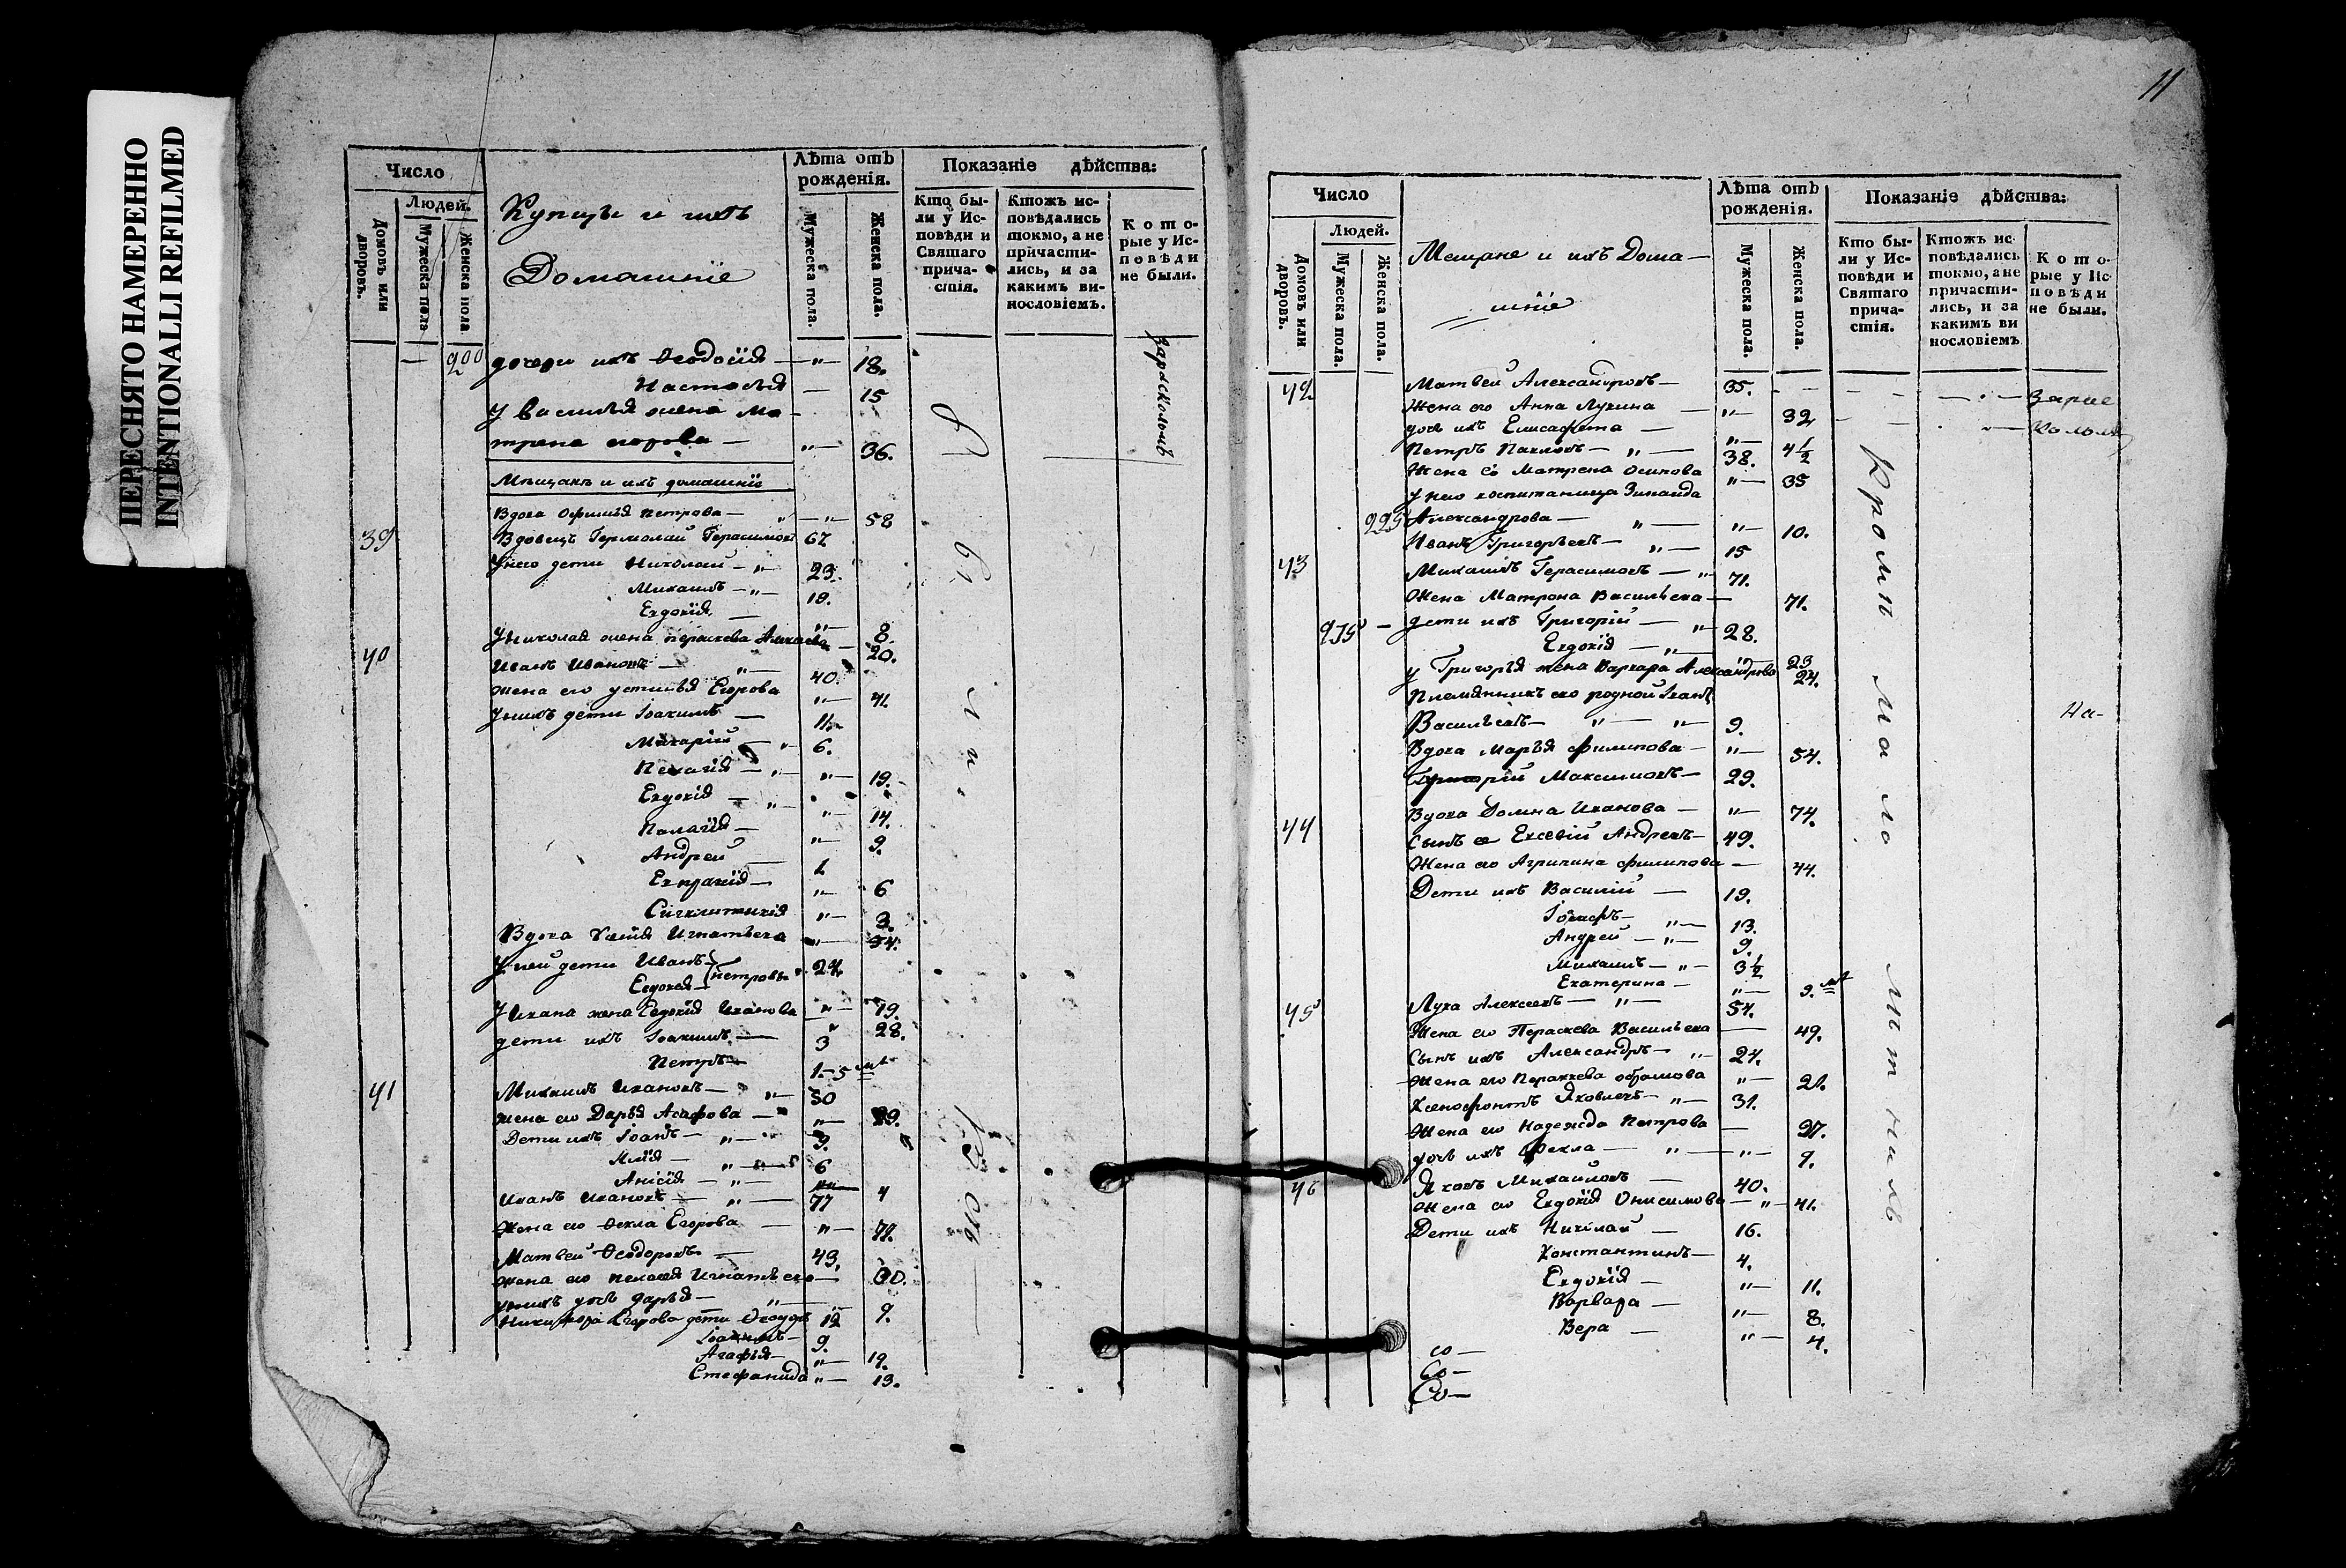 ПЕРЕСНЯТО НАМЕРЕННО
INTENTIONALLI REFILMED
Число
Людей.
Домовъ или дворовъ.
Мужеска пола
Женска пола
Купцы и ихъ
Домашніе
Лѣта отъ рожденія.
Мужеска пола.
Женска пола.
Показаніе дѣйства:
Кто бы-
ли у Ис-
повѣди и
Святаго
прича-
стія.
Ктожъ ис-
повѣдались
токмо, а не
причасти-
лись, и за
какимъ ви-
нословіемъ.
Кото-
рые у Ис-
повѣди
не были.
— 200 дочери ихъ Ѳеодосія — „ — 18.
Настасья — 15
У василья жена Ма-
трена егорова — „ — 36.
за расколомъ
Мѣщанъ и ихъ домашніе
Вдова Офимья петрова — „ — „ — 58
39 Вдовецъ Гермолай Герасимовъ 67
У него дети Николай — „ — 23.
Михаилъ — „ — 18.
Евдокія — „ — 8.
У николая жена параскева — 20.
40 Иванъ Ивановъ — „ — 40.
жена его устинья Егорова „ — 41.
У нихъ дети Іоакимъ — 11.
Макарій — „ 6.
Пелагія — „ — „ — 19.
Евдокія — „ — „ — 14.
Палагія — „ — 9.
Андрей — 1
Евпраксія — „ — 6
Сигклитикія „ — 3.
Вдова Игнатьева „ — 54.
У ней дети Иванъ петровы 24.
Евдокея
У Ивана жена Евдокія Иванова „ — 19.
28.
дети ихъ Іоакимъ — 3 „
Петръ — 1 — 5 м
41 Михаилъ Ивановъ — „ — 50
жена его Дарья Асафова — „ — 29.
Дети ихъ Іоанъ — „ — 9.
Илія — „ — 6
Анисія — „ — 4
Иванъ Ивановъ — „ — 77
Жена его Ѳекла Егорова — „ — 77.
Матвей Ѳеодоровъ — 43.
жена его пелагея Игнатьева — 30.
у нихъ дочь дарья — „ — „ 9.
Никифора Егорова дети Ѳеодоръ 12
Іоакимъ — 9.
Агафья — „ — 19.
Стефанида „ — 13.
11
Число
Людей.
Домовъ или дворовъ.
Мужеска пола.
Женска пола.
Мещане и ихъ Дома-
шніе
Лѣта отъ рожденія.
Мужеска пола.
Женска пола.
Показаніе дѣйства:
Кто бы-
ли у Ис-
повѣди и
Святаго
прича-
стія.
Ктожъ ис-
повѣдались
токмо, а не
причасти-
лись, и за
какимъ ви
нословіемъ
Кото-
рые у Ис-
повѣди
не были.
42 Матвей Александровъ — 35. — — — за рас
Жена его Анна Лукина — „ — 32 — — коломъ
дочь ихъ Елисафета — „ — 4½
Петръ Павловъ — „ — 38.
Жена его Матрена Осипова „ — 35
У него воспитаница Зинаида
225 Александрова — „ — „ — 10.
Иванъ Григорьевъ — „ — 15
43 Михаилъ Герасимовъ — „ 71.
Жена Матрона Васильева — 71.
235 — дети ихъ Григорій — „ — 28.
Евдокія — „ — „ 23
у Григорья жена Варвара Александрова 24.
Племянникъ его родной Іванъ
Васильевъ — „ — „ — 9.
Вдова Марья филипова — „ — 54.
Григорій Максимовъ — 29.
44 Вдова Домна Иванова — „ — 74.
Сынъ ея Евсевій Андреевъ — 49.
Жена его Агрипина филипова — 44.
Дети ихъ Василій — 19.
Іосифъ — „ — 13.
Андрей — „ — 9.
Михаилъ — „ — 3½
Екатерина — „ — 9. м
45 Лука Алексеевъ — „ — 54.
Жена его Параскева Васильева — 49.
Сынъ ихъ Александръ — „ — 24.
Жена его Параскева обрамова „ — 21.
Ксенофонтъ Яковлевъ — „ — 31.
Жена его Надежда Петрова — 27.
дочь ихъ Фекла — „ — „ — 9.
46 Яковъ Михаиловъ — 40.
Жена его Евдокія Онисимова — „ — 41.
Дети ихъ Николай — 16.
Константинъ — 4.
Евдокія — „ — 11.
Варвара — „ — 8.
Вера — „ — 4.
со —
Со —
Со —
Кромѣ мало лѣтнихъ
На-